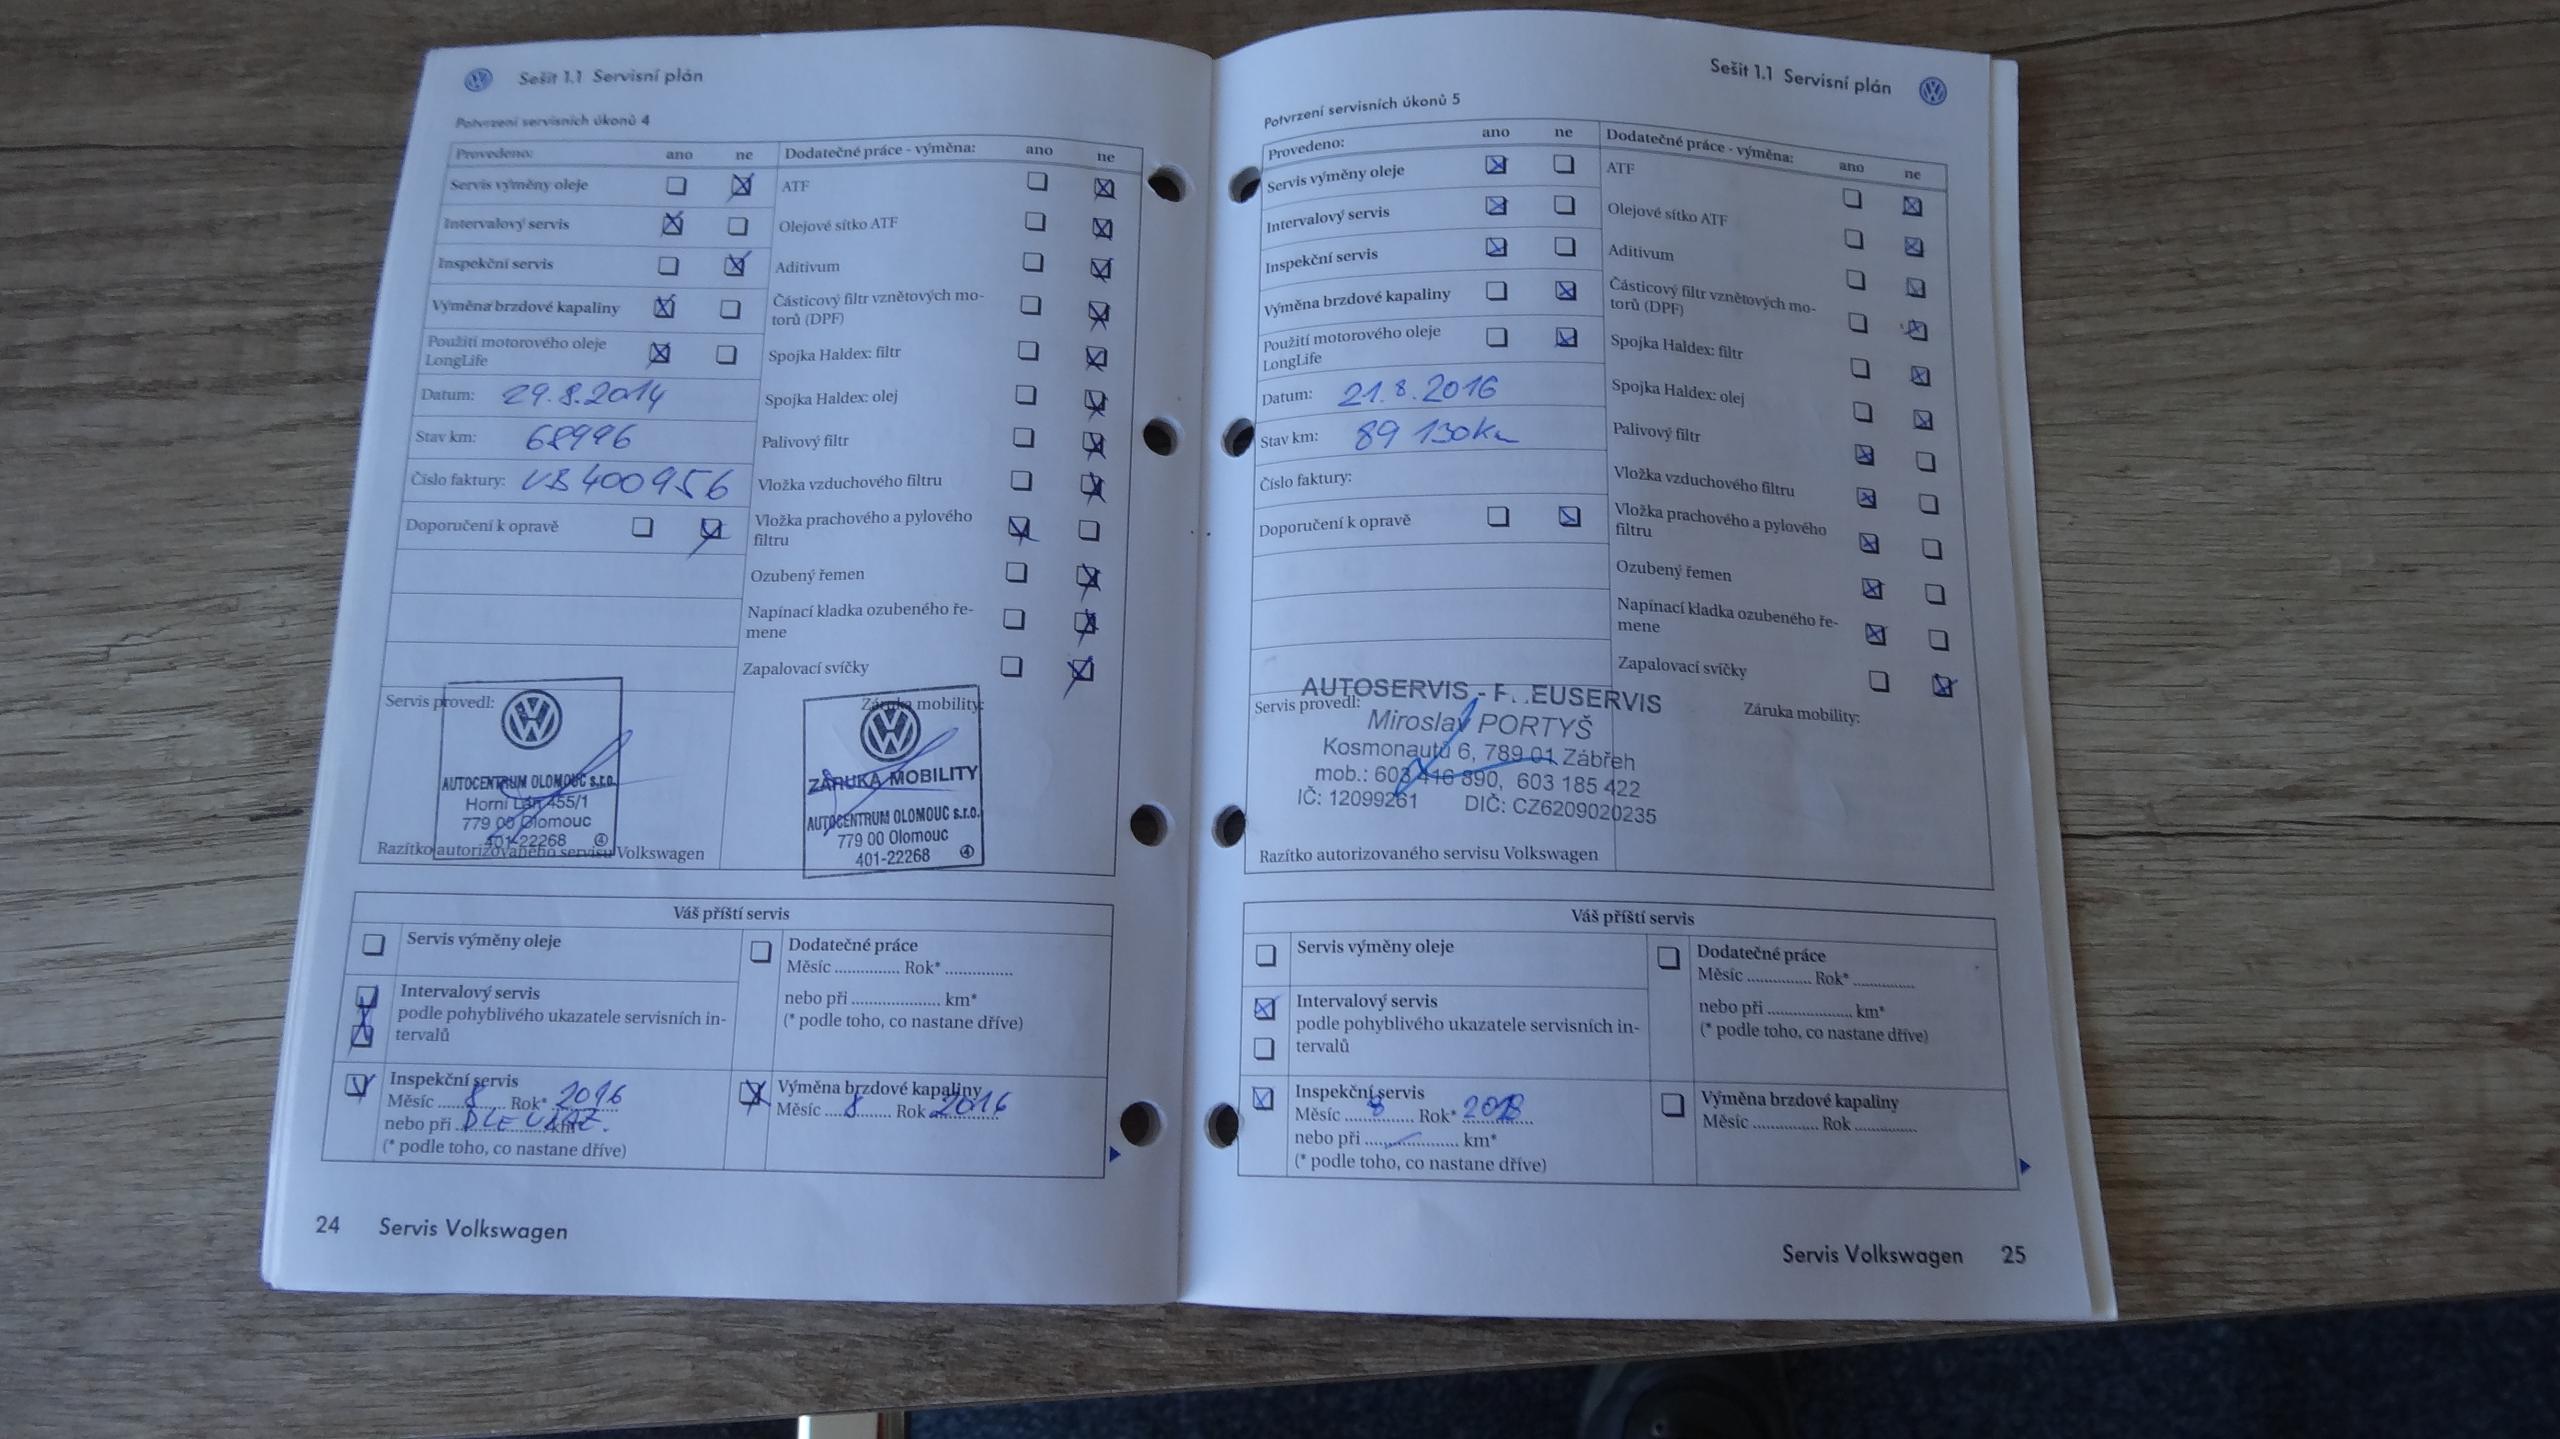 Sešit 1.1 Servisní plán
Potvrzení servisních úkonů 4
Provedeno: ano ne
Servis výměny oleje
Intervalový servis
Inspekční servis
Výměna brzdové kapaliny
Použití motorového oleje
LongLife
Datum: 29.8.2014
Stav km: 68996
Číslo faktury: 400956
Doporučení k opravě
Dodatečné práce - výměna: ano ne
ATF
Olejové sítko ATF
Aditivum
Částicový filtr vznětových mo-
torů (DPF)
Spojka Haldex: filtr
Spojka Haldex: olej
Palivový filtr
Vložka vzduchového filtru
Vložka prachového a pylového
filtru
Ozubený řemen
Napínací kladka ozubeného ře-
mene
Zapalovací svíčky
Servis provedl:
AUTOCENTRUM OLOMOUC s.r.o.
Horní Lán 455/1
779 00 Olomouc
401-22268 4
Razítko autorizovaného servisu Volkswagen
Záruka mobility:
ZÁRUKA MOBILITY
AUTOCENTRUM OLOMOUC s.r.o.
779 00 Olomouc
401-22268 4
Váš příští servis
Servis výměny oleje
Intervalový servis
podle pohyblivého ukazatele servisních in-
tervalů
Inspekční servis
Měsíc 8 Rok* 2016
nebo při DLE UKAZ. km*
(* podle toho, co nastane dříve)
Dodatečné práce
Měsíc ............... Rok* ...............
nebo při .................... km*
(* podle toho, co nastane dříve)
Výměna brzdové kapaliny
Měsíc 8 Rok 2016
24 Servis Volkswagen
Sešit 1.1 Servisní plán
Potvrzení servisních úkonů 5
Provedeno: ano ne
Servis výměny oleje
Intervalový servis
Inspekční servis
Výměna brzdové kapaliny
Použití motorového oleje
LongLife
Datum: 21.8.2016
Stav km: 89 130km
Číslo faktury:
Doporučení k opravě
Dodatečné práce - výměna: ano ne
ATF
Olejové sítko ATF
Aditivum
Částicový filtr vznětových mo-
torů (DPF)
Spojka Haldex: filtr
Spojka Haldex: olej
Palivový filtr
Vložka vzduchového filtru
Vložka prachového a pylového
filtru
Ozubený řemen
Napínací kladka ozubeného ře-
mene
Zapalovací svíčky
Servis provedl:
AUTOSERVIS -
Miroslav PORTYŠ
Kosmonautů 6, 789 01 Zábřeh
mob.: 603 416 890, 603 185 422
IČ: 12099261 DIČ: CZ6209020235
Razítko autorizovaného servisu Volkswagen
Záruka mobility:
Váš příští servis
Servis výměny oleje
Intervalový servis
podle pohyblivého ukazatele servisních in-
tervalů
Inspekční servis
Měsíc 8 Rok* 2018
nebo při .................... km*
(* podle toho, co nastane dříve)
Dodatečné práce
Měsíc ............... Rok* ...............
nebo při .................... km*
(* podle toho, co nastane dříve)
Výměna brzdové kapaliny
Měsíc ............... Rok ...............
Servis Volkswagen 25